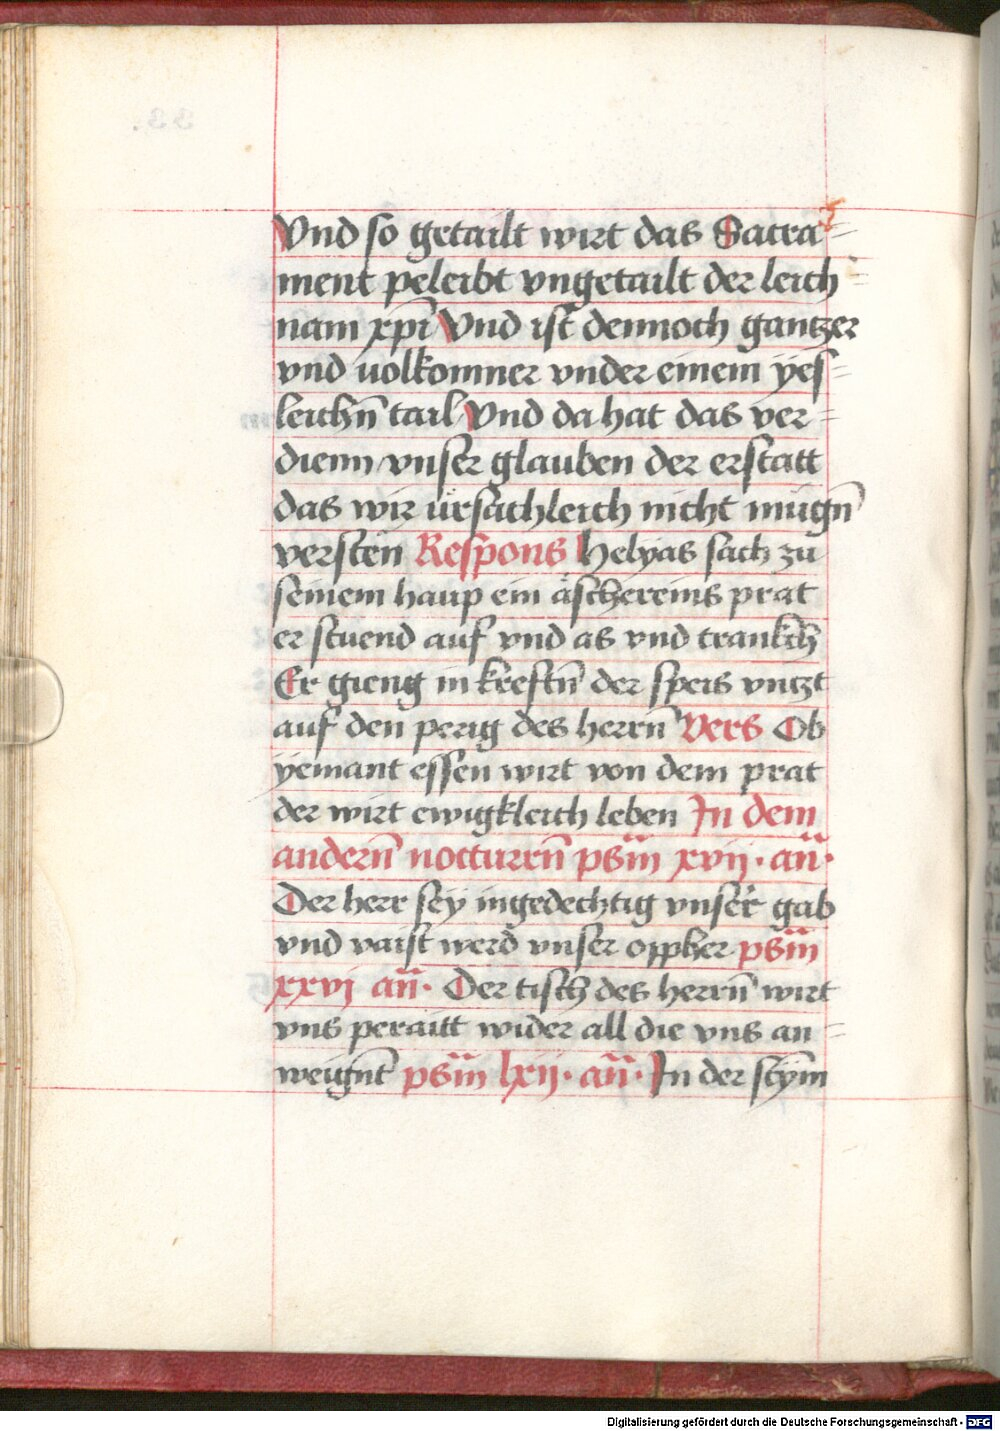 Vnd so getailt wirt das Sacra=
ment peleibt vngetailt der leich=
nam xp̄i Vnd ist dennoch gantzer
vnd uolkomner vnder einem yes=
leichn̄ tail Vnd da hat das ver=
dienn vnser glauben der erstatt
das wir ursachleich nicht mugn̄
versten Respons Helyas sach zu
seinem haup ein äschereins prat
er stuend auf vnd as vnd trankch
Er gieng in kreftn̄ der speis vntzt
auf den perig des herrn̄ Vers Ob
yemant essen wirt von dem prat
der wirt ewigkleich leben In dem
andern̄ nocturrn̄ psm̄ xvij. an̄.
Der herr sey ingedechtig vnser gab
vnd vaist werd vnser oppher psm̄
xxvi an̄. Der tisch des herrn̄ wirt
vns peraitt wider all die vns an=
weignt psm̄ lxij. an̄. In der stym̄
Digitalisierung gefördert durch die Deutsche Forschungsgemeinschaft - DFG